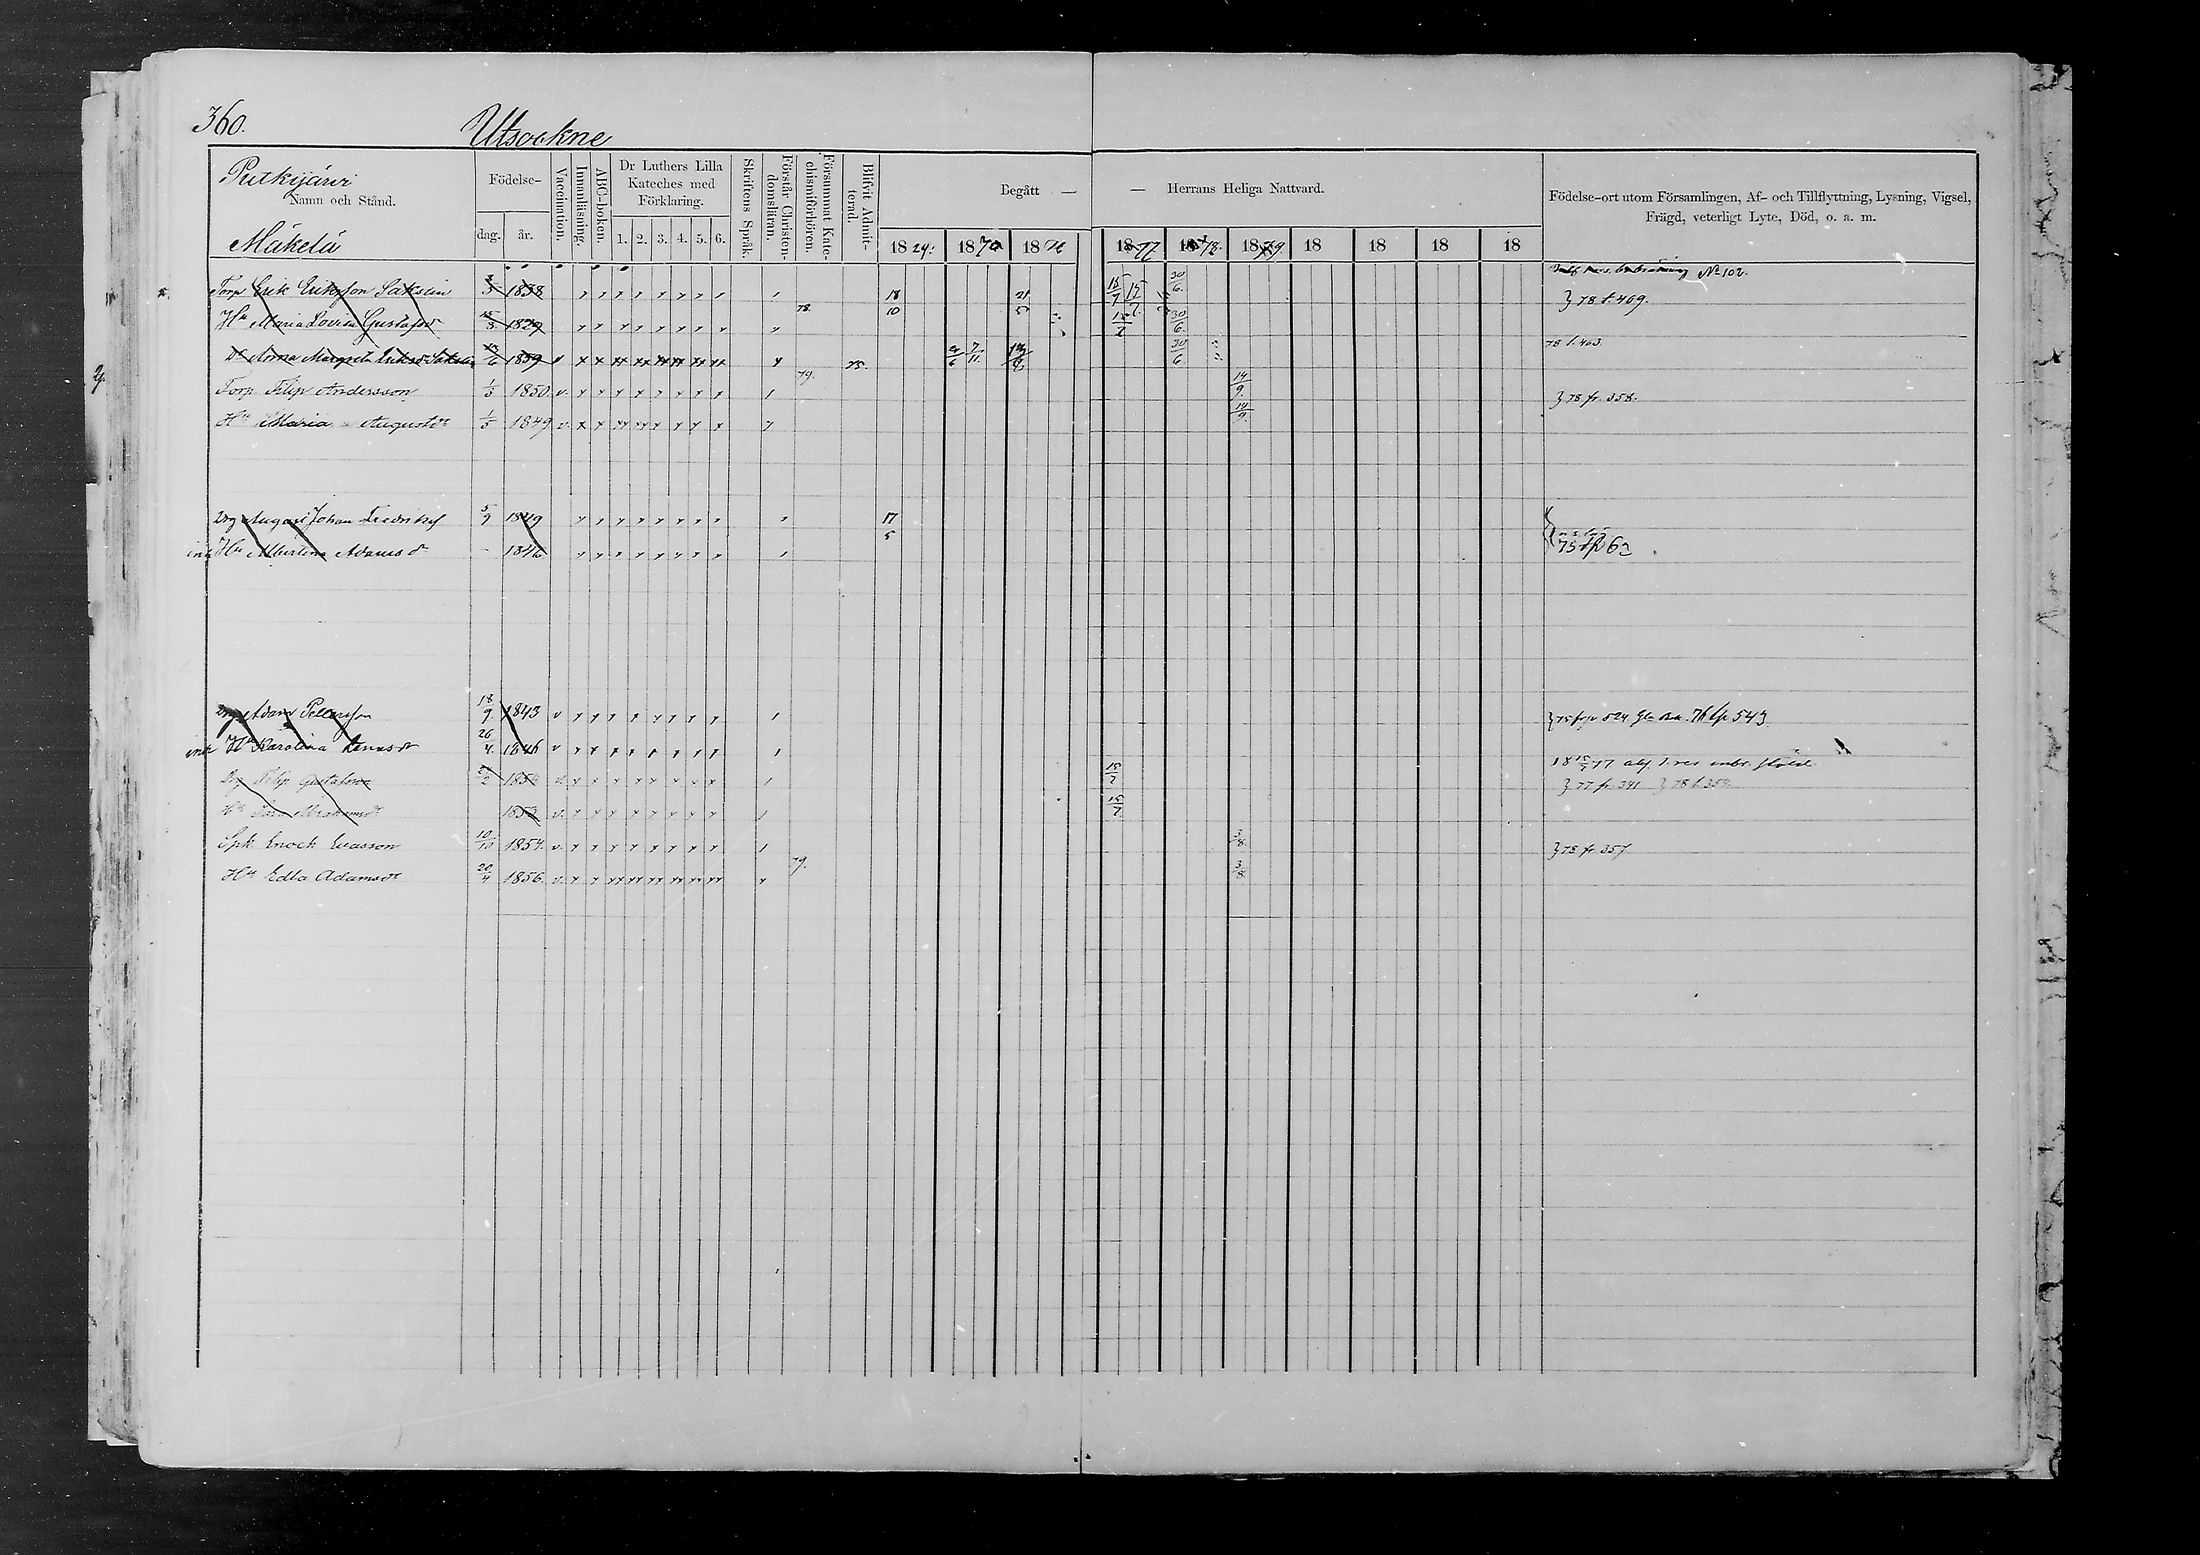 360.
Utsockne
Putkijärvi
Namn och Stånd.
Mäkelä
Födelse-
dag.
år.
Vaccination.
Innanläsning.
ABC-boken.
Dr Luthers Lilla
Kateches med
Förklaring.
1. 2. 3. 4. 5. 6.
Skriftens Språk.
Förstår Christen-
domsläran.
Försummat Kate-
chismiförhören.
Blifvit Admit-
terad.
Begått — — Herrans Heliga Nattvard.
1874. 1875 1876 1877 1878. 1879. 18 18 18 18
Födelse-ort utom Församlingen, Af- och Tillflyttning, Lysning, Vigsel,
Frägd, veterligt Lyte, Död, o. a. m.
No 102.
Torp Erik Eriksson Sakslin 1838 18/10 21/5 15/7 30/6. } 78 t. 409.
Hu Maria Lovisa Gustafsdr 1829 78. 15/7 30/6.
Dr Anna Margreta Eriksdr 1859 v 75. 7/11 30/6 78 t. 403
Torp. Filip Andersson 1/5 1850. v. 79. 14/9. } 78 fr. 358.
Hu Maria Augustdr 1/5 1849 v. 14/9.
Drg August Johan Fredriks 5/9 1849 17/5
inh Hu Albertina Adamsdr - 1846 75 62
Drg Adam 18/9. 1843 v } 75 fr 524 543
inh Hu Karolina 26/4. 1846 v
Drg Filip Gustafsson 1854 v. 15/7 } 77 fr. 341 } 78 t. 354.
Hu Abrahamsdr 1853 v. 15/7
Spk Enoch Evasson 10/10 1854. v. 3/8. } 78 fr. 357
Hu Edla Adamsdr 20/4 1856. v. 79. 3/8.